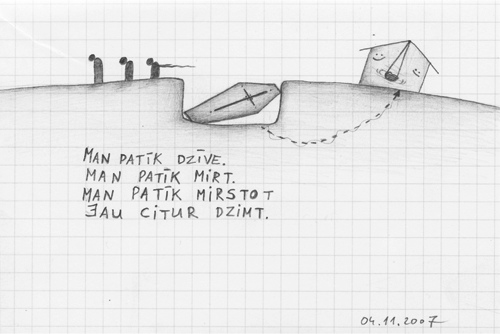 MAN PATĪK DZĪVE.
MAN PATĪK MIRT.
MAN PATĪK MIRSTOT
JAU CITUR DZIMT.
04.11.2007